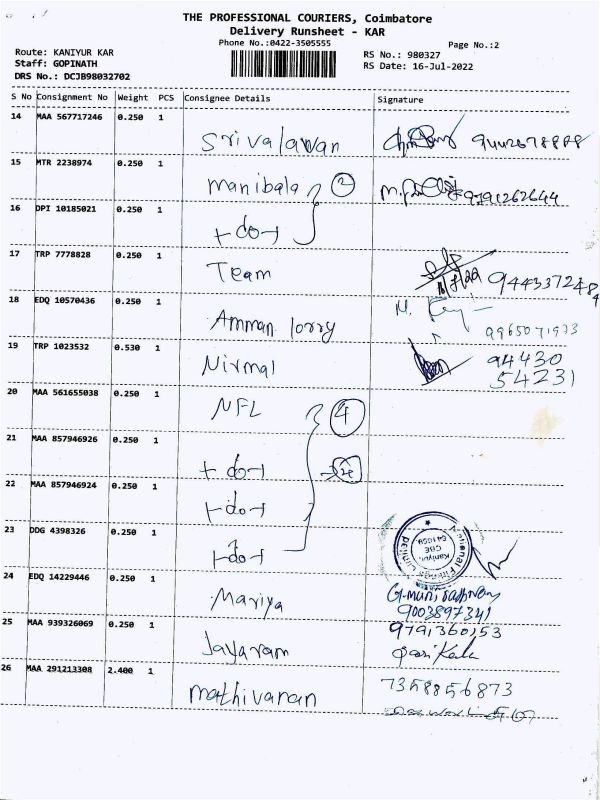 THE PROFESSIONAL COURIERS, Coimbatore
Delivery Runsheet - KAR
Phone No.:0422-3505555
Page No.:2
Route: KANIYUR KAR
Staff: GOPINATH
DRS No.: DCJB98032702
RS No.: 980327
RS Date: 16-Jul-2022
S No Consignment No Weight PCS Consignee Details Signature
14 MAA 567717246 0.250 1 Srivalavan
15 MTR 2238974 0.250 1 Manibala 2 9791262644
16 DPI 10185021 0.250 1 do
17 TRP 7778828 0.250 1 Team 9443372484
18 EDQ 10570436 0.250 1 Amman lorry 9965071973
19 TRP 1023532 0.530 1 Nirmal 94430
54231
20 MAA 561655038 0.250 1 NFL 4
21 MAA 857946926 0.250 1 do
22 MAA 857946924 0.250 1 do
23 DDG 4398326 0.250 1 do
24 EDQ 14229446 0.250 1 Mariya
9003897341
25 MAA 939326069 0.250 1 Jayaram 9791360153
26 MAA 291213308 2.400 1 Mathivanan 7358856873